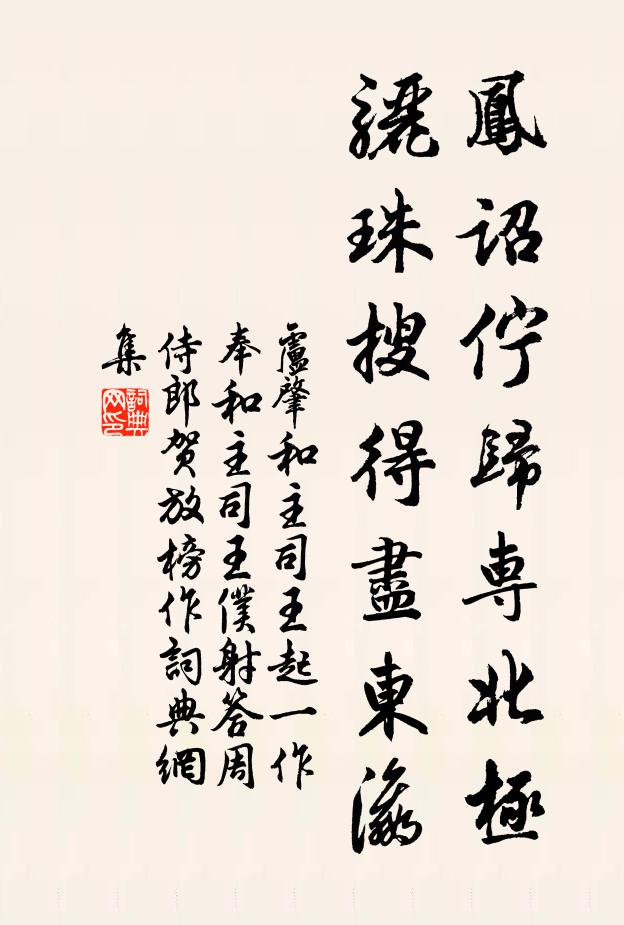 鳳詔佇歸專北極
驪珠搜得盡東瀛
盧肇和主司王起一作
奉和主司王僕射答周
侍郎賀放榜作詞典網
集
詞典網印